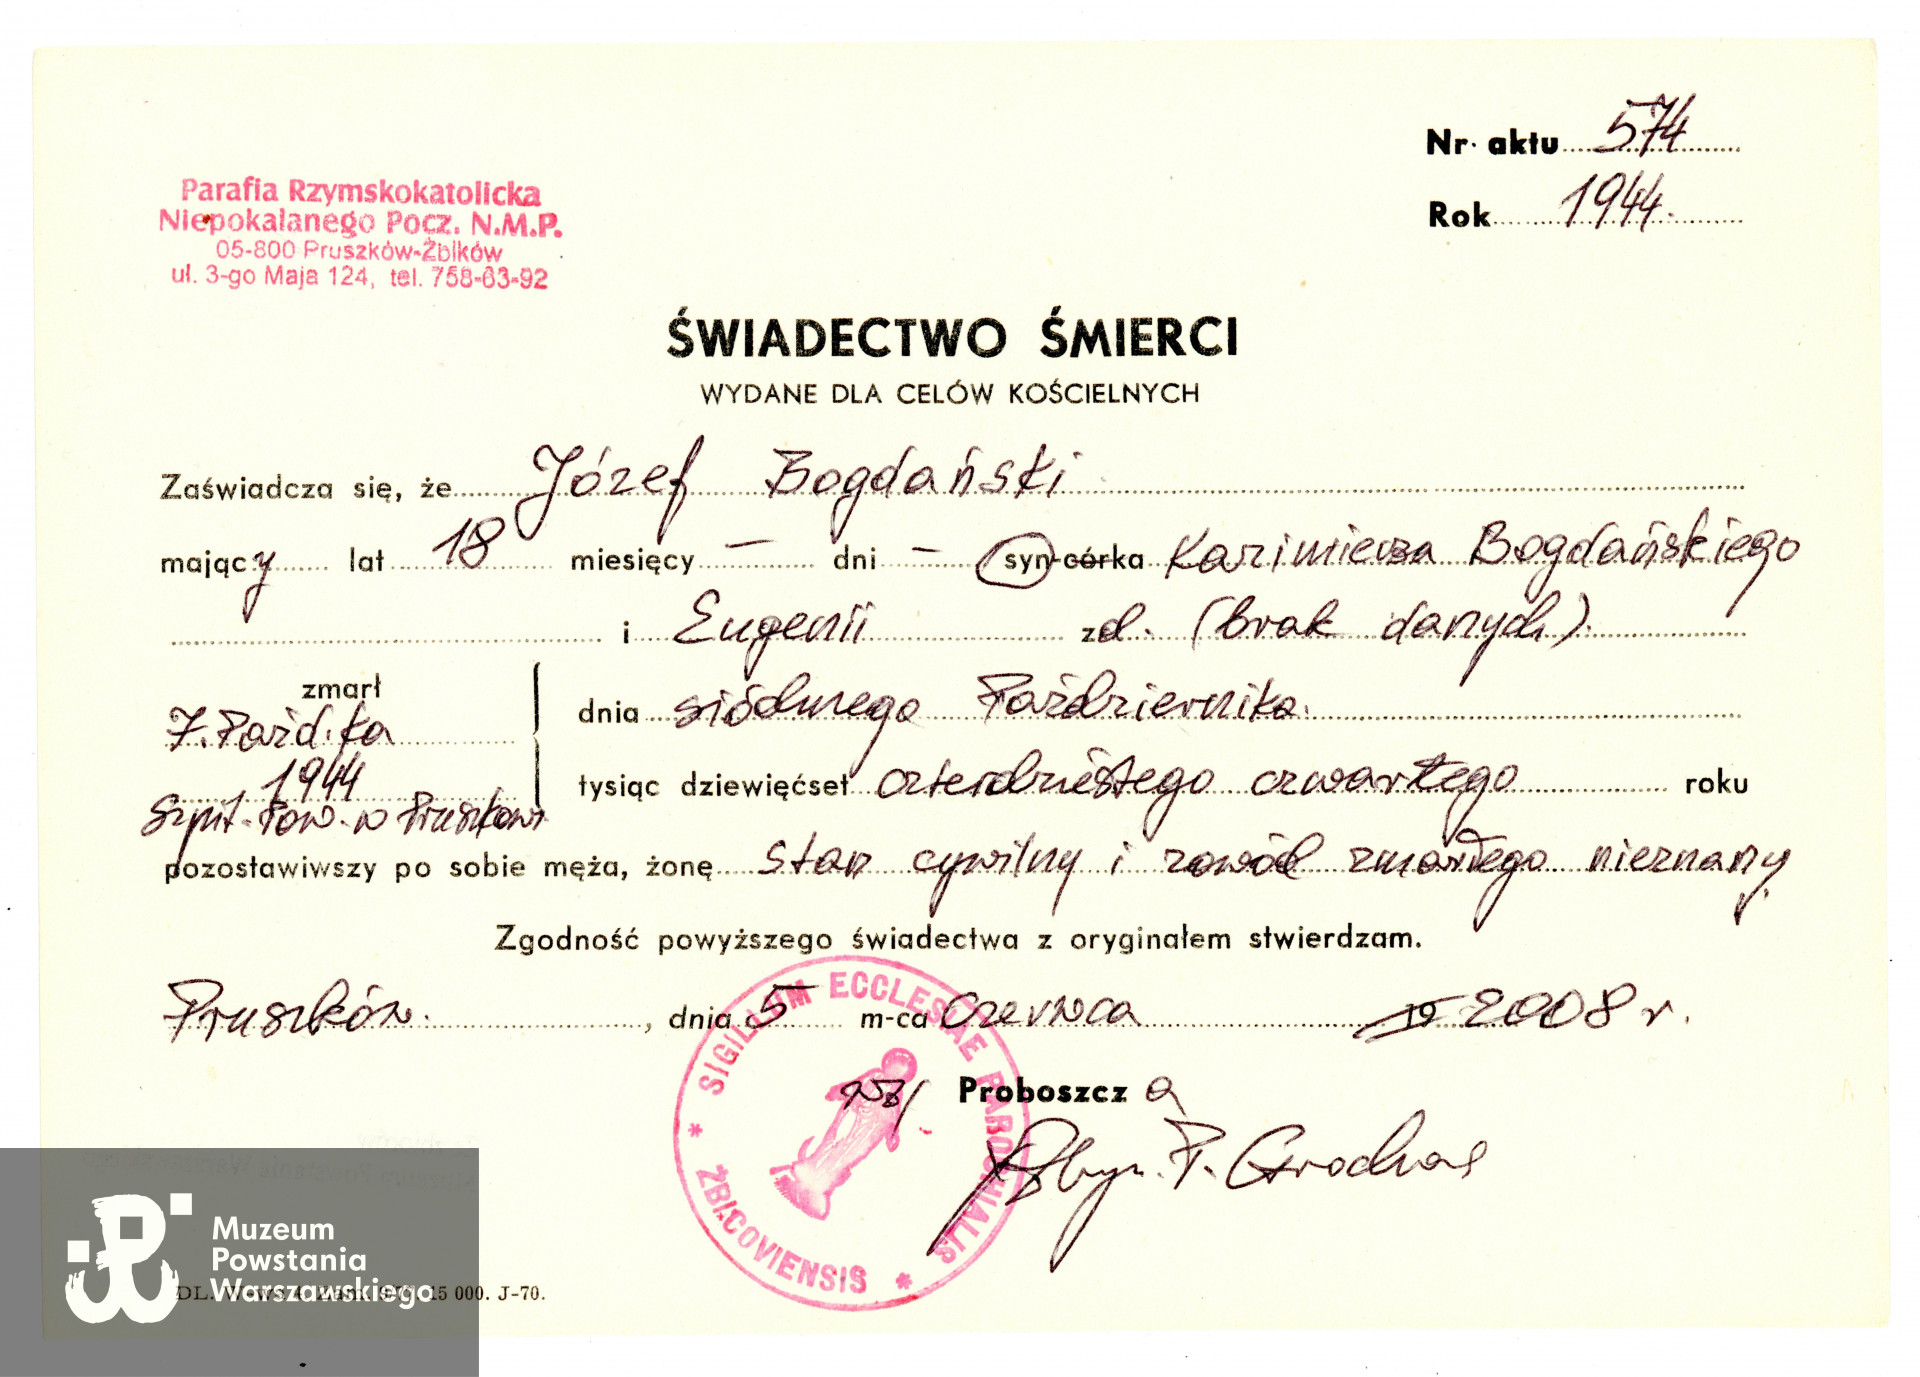 Nr. aktu 574
Rok 1944.
Parafia Rzymskokatolicka
Niepokalanego Pocz. N.M.P.
05-800 Pruszków-Żbików
ul. 3-go Maja 124, tel. 758-63-92
ŚWIADECTWO ŚMIERCI
WYDANE DLA CELÓW KOŚCIELNYCH
Zaświadcza się, że Józef Bogdański
mający lat 18 miesięcy — dni — syn-córka Kazimierza Bogdańskiego
i Eugenii zd. (brak danych)
zmarł
7. Paźd.ka
1944
Szpit. Pow. w Pruszkowi
dnia siódmego Października.
tysiąc dziewięćset czterdziestego czwartego roku
pozostawiwszy po sobie męża, żonę stan cywilny i zawód zmarłego nieznany
Zgodność powyższego świadectwa z oryginałem stwierdzam.
Pruszków, dnia 5 m-ca Czerwca 19 2008 r.
Proboszcz a
SIGILLUM ECCLESIAE PAROCHIALIS * ŻBICOVIENSIS *
Muzeum
Powstania
Warszawskiego
15 000. J-70.